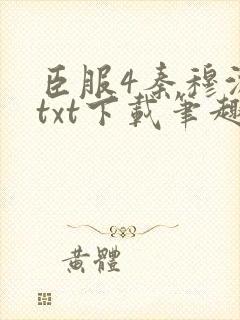 臣服4秦穆
txt下載筆趣
黄體